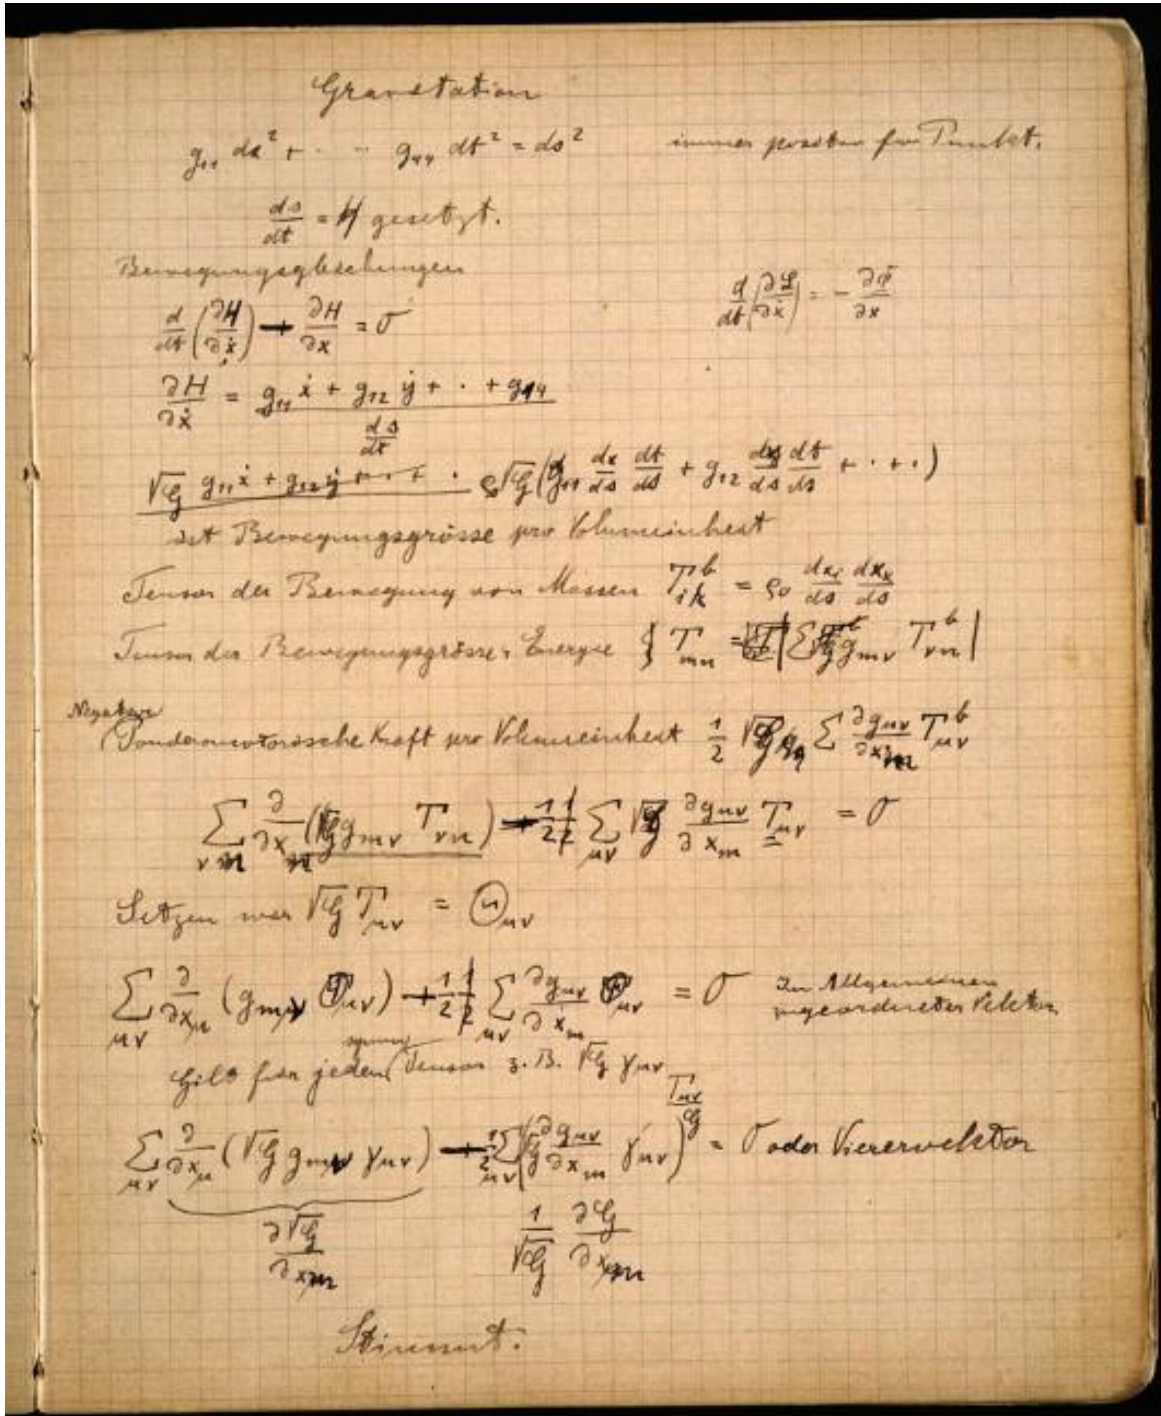 Gravitation
g₁₁ dx² + · - g₄₄ dt² = ds² immer positiv für Punkt.
ds/dt = H gesetzt.
Bewegungsgleichungen
d/dt (∂H/∂ẋ) - ∂H/∂x = 0 d/dt (∂L/∂ẋ) = - ∂Φ/∂x
∂H/∂ẋ = (g₁₁ ẋ + g₁₂ ẏ + · + g₁₄) / (ds/dt)
√G g₁₁ẋ + g₁₂ẏ + · · + · ρ√G (g₁₁ dx/ds dt/ds + g₁₂ dy/ds dt/ds + · + ·)
ist Bewegungsgrösse pro Volumeinheit
Tensor der Bewegung von Massen Tᵇᵢₖ = ρ₀ dxᵢ/ds dxₖ/ds
Tensor der Bewegungsgrösse u. Energie Tₘₙ = Σ √G gₘᵥ Tᵇᵥₙ
Negative
Ponderomotorische Kraft pro Volumeinheit 1/2 √G Σ ∂g_μν/∂xₘ Tᵇ_μν
Σ_νn ∂/∂xₙ (√G gₘᵥ Tᵥₙ) - 1/2 Σ_μν √G ∂g_μν/∂xₘ T_μν = 0
Setzen wir √G T_μν = Θ_μν
Σ_μν ∂/∂x_μ (g_mν Θ_μν) - 1/2 Σ_μν ∂g_μν/∂xₘ Θ_μν = 0 Im Allgemeinen
zugeordneter Vektor
symm
Gilt für jeden Tensor z.B. √G γ_μν
T_μν/G
Σ_μν ∂/∂x_μ (√G g_mν γ_μν) - 1/2 Σ_μν (√G ∂g_μν/∂xₘ γ_μν) = 0 oder Vierervektor
∂√G/∂xₘ 1/√G ∂G/∂xₘ
Stimmt.